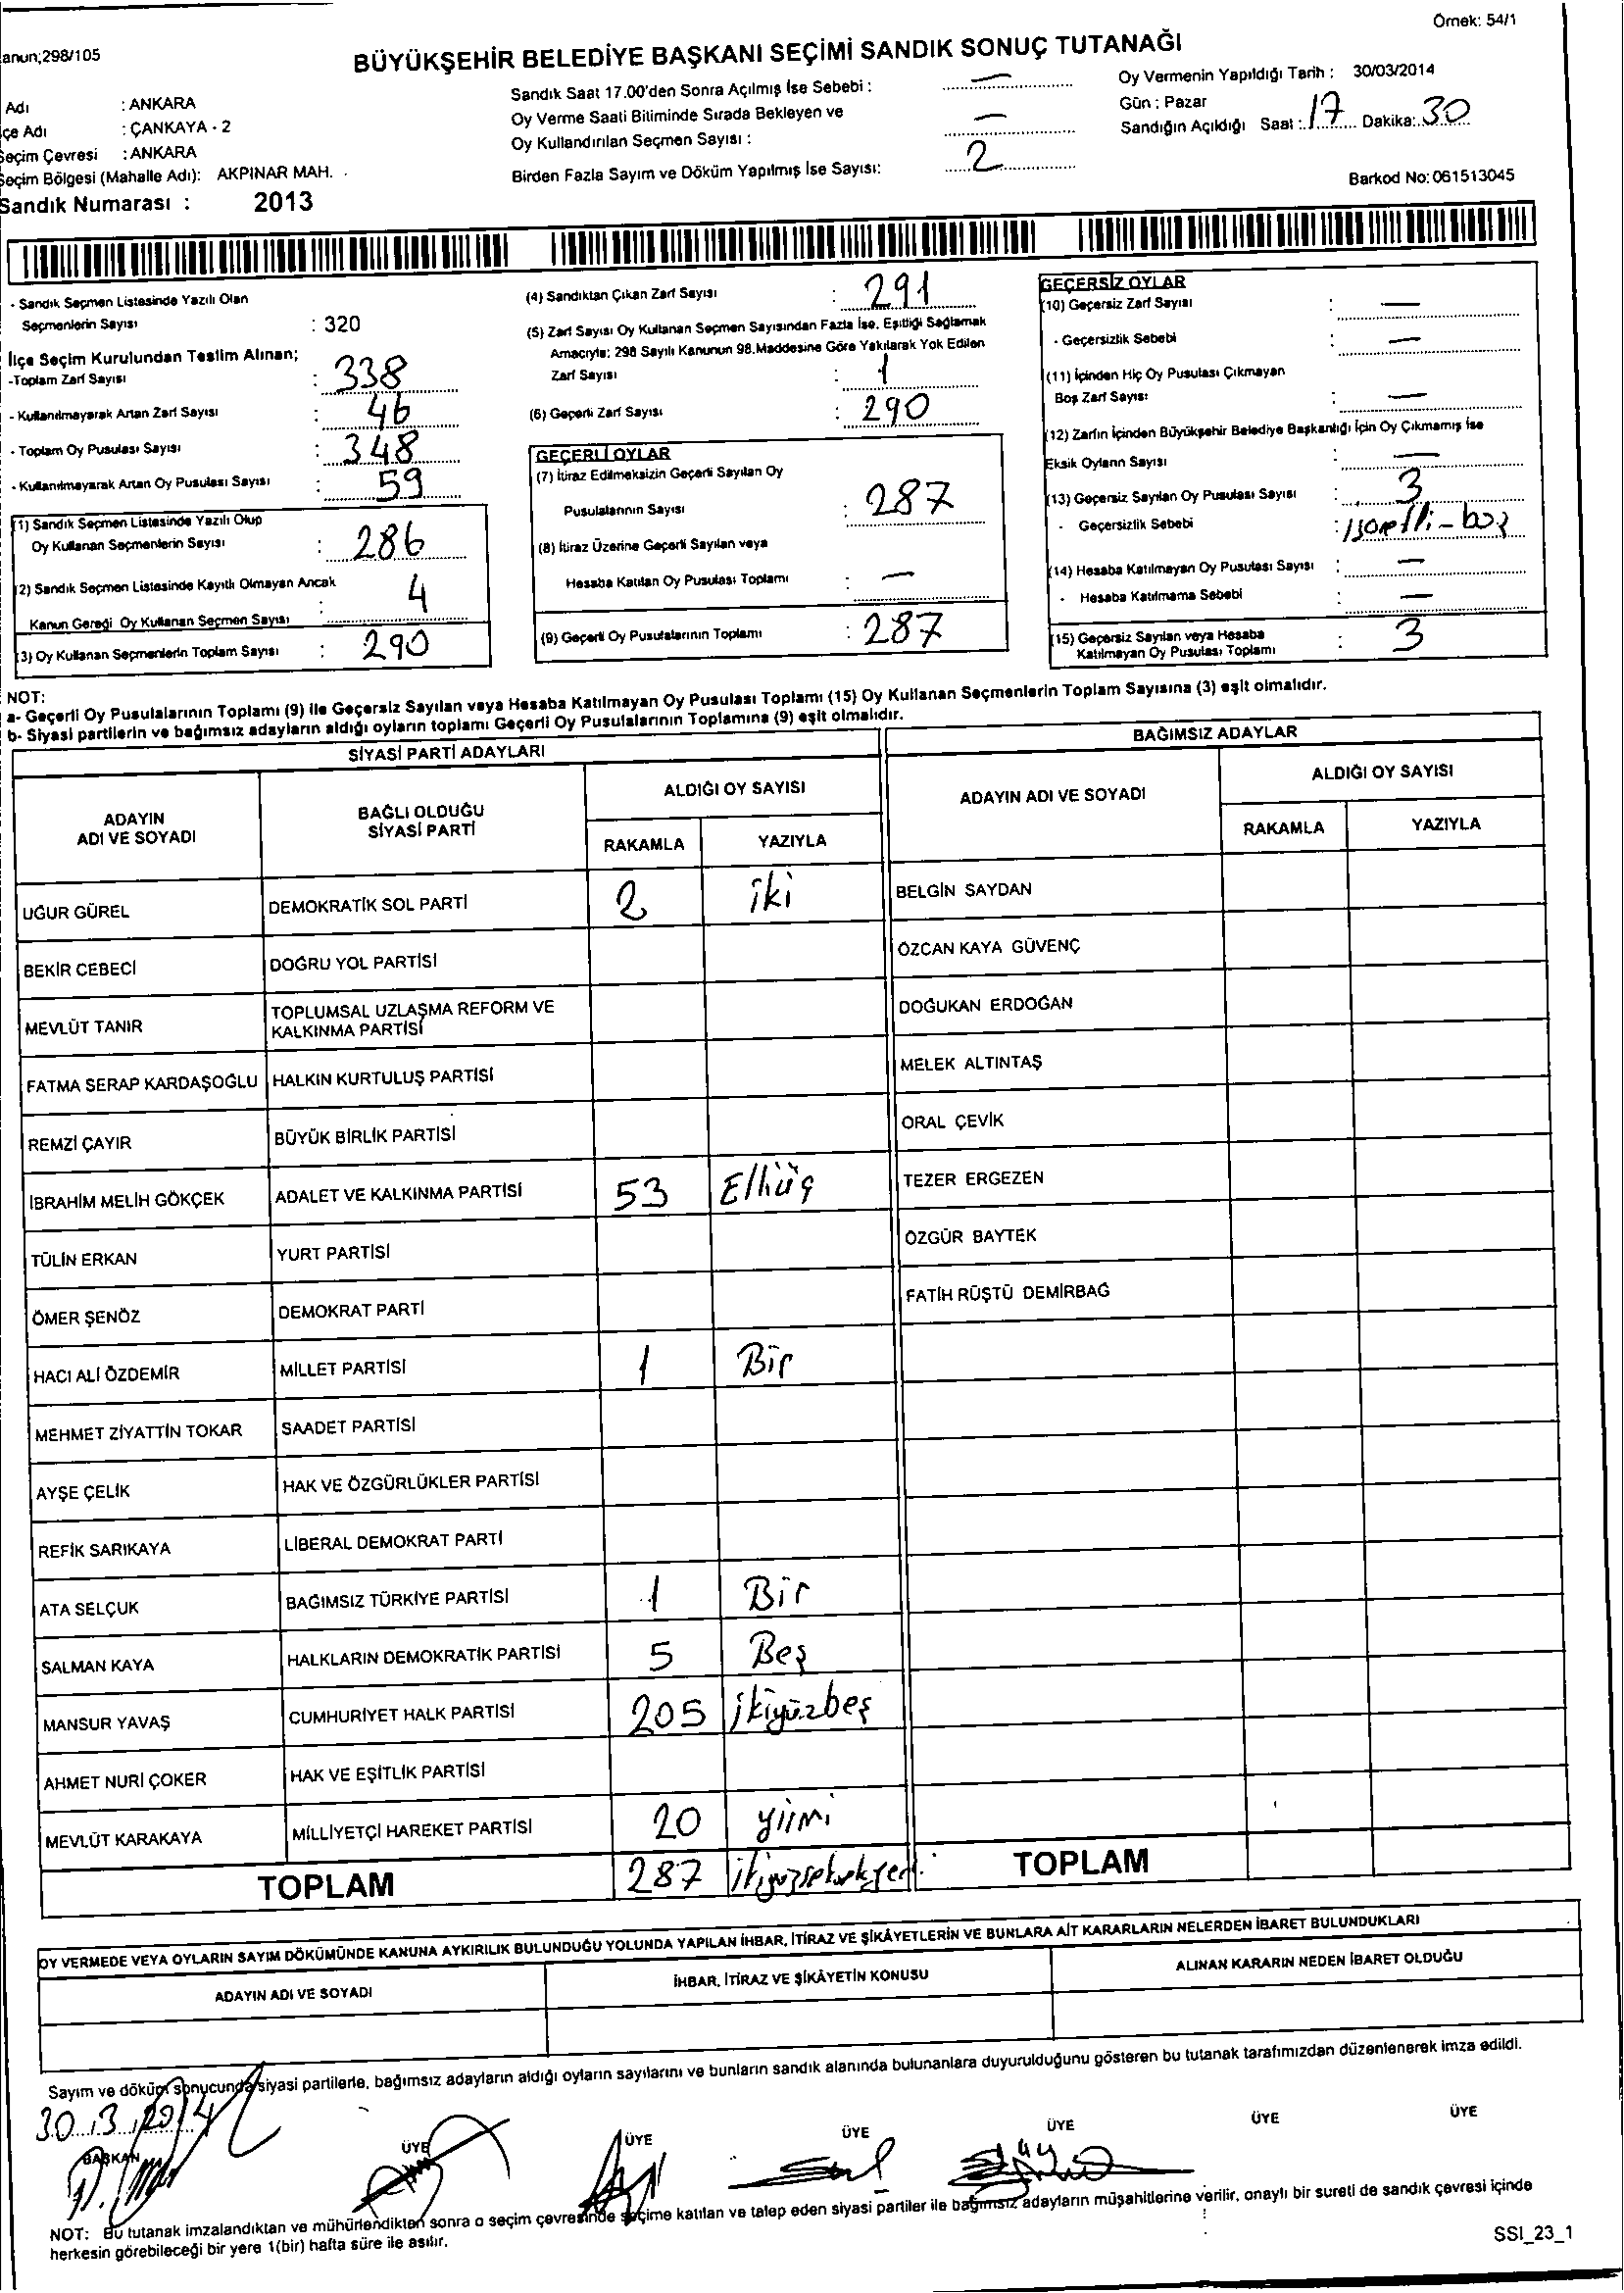 Örnek: 54/1
anun;298/105
BÜYÜKŞEHİR BELEDİYE BAŞKANI SEÇİMİ SANDIK SONUÇ TUTANAĞI
Adı : ANKARA
çe Adı : ÇANKAYA - 2
Seçim Çevresi : ANKARA
Seçim Bölgesi (Mahalle Adı): AKPINAR MAH.
Sandık Numarası : 2013
Sandık Saat 17.00'den Sonra Açılmış İse Sebebi : —
Oy Verme Saati Bitiminde Sırada Bekleyen ve
Oy Kullandırılan Seçmen Sayısı : —
Birden Fazla Sayım ve Döküm Yapılmış İse Sayısı: 2
Oy Vermenin Yapıldığı Tarih : 30/03/2014
Gün : Pazar
Sandığın Açıldığı Saat : 17 Dakika: 30
Barkod No: 061513045
- Sandık Seçmen Listesinde Yazılı Olan
Seçmenlerin Sayısı : 320
İlçe Seçim Kurulundan Teslim Alınan;
-Toplam Zarf Sayısı : 338
- Kullanılmayarak Artan Zarf Sayısı : 46
- Toplam Oy Pusulası Sayısı : 348
- Kullanılmayarak Artan Oy Pusulası Sayısı : 59
(1) Sandık Seçmen Listesinde Yazılı Olup
Oy Kullanan Seçmenlerin Sayısı : 286
(2) Sandık Seçmen Listesinde Kayıtlı Olmayan Ancak
Kanun Gereği Oy Kullanan Seçmen Sayısı : 4
(3) Oy Kullanan Seçmenlerin Toplam Sayısı : 290
(4) Sandıktan Çıkan Zarf Sayısı : 291
(5) Zarf Sayısı Oy Kullanan Seçmen Sayısından Fazla İse, Eşitliği Sağlamak
Amacıyla; 298 Sayılı Kanunun 98.Maddesine Göre Yakılarak Yok Edilen
Zarf Sayısı : 1
(6) Geçerli Zarf Sayısı : 290
GEÇERLİ OYLAR
(7) İtiraz Edilmeksizin Geçerli Sayılan Oy
Pusulalarının Sayısı : 287
(8) İtiraz Üzerine Geçerli Sayılan veya
Hesaba Katılan Oy Pusulası Toplamı : —
(9) Geçerli Oy Pusulalarının Toplamı : 287
GEÇERSİZ OYLAR
(10) Geçersiz Zarf Sayısı : —
- Geçersizlik Sebebi : —
(11) İçinden Hiç Oy Pusulası Çıkmayan
Boş Zarf Sayısı : —
(12) Zarfın İçinden Büyükşehir Belediye Başkanlığı İçin Oy Çıkmamış İse
Eksik Oyların Sayısı : —
(13) Geçersiz Sayılan Oy Pusulası Sayısı : 3
- Geçersizlik Sebebi : İşaretli - boş
(14) Hesaba Katılmayan Oy Pusulası Sayısı : —
- Hesaba Katılmama Sebebi : —
(15) Geçersiz Sayılan veya Hesaba
Katılmayan Oy Pusulası Toplamı : 3
NOT:
a- Geçerli Oy Pusulalarının Toplamı (9) ile Geçersiz Sayılan veya Hesaba Katılmayan Oy Pusulası Toplamı (15) Oy Kullanan Seçmenlerin Toplam Sayısına (3) eşit olmalıdır.
b- Siyasi partilerin ve bağımsız adayların aldığı oyların toplamı Geçerli Oy Pusulalarının Toplamına (9) eşit olmalıdır.
SİYASİ PARTİ ADAYLARI
ADAYIN
ADI VE SOYADI
BAĞLI OLDUĞU
SİYASİ PARTİ
ALDIĞI OY SAYISI
RAKAMLA YAZIYLA
UĞUR GÜREL DEMOKRATİK SOL PARTİ 2 iki
BEKİR CEBECİ DOĞRU YOL PARTİSİ
MEVLÜT TANIR TOPLUMSAL UZLAŞMA REFORM VE
KALKINMA PARTİSİ
FATMA SERAP KARDAŞOĞLU HALKIN KURTULUŞ PARTİSİ
REMZİ ÇAYIR BÜYÜK BİRLİK PARTİSİ
İBRAHİM MELİH GÖKÇEK ADALET VE KALKINMA PARTİSİ 53 Elliüç
TÜLİN ERKAN YURT PARTİSİ
ÖMER ŞENÖZ DEMOKRAT PARTİ
HACI ALİ ÖZDEMİR MİLLET PARTİSİ 1 Bir
MEHMET ZİYATTİN TOKAR SAADET PARTİSİ
AYŞE ÇELİK HAK VE ÖZGÜRLÜKLER PARTİSİ
REFİK SARIKAYA LİBERAL DEMOKRAT PARTİ
ATA SELÇUK BAĞIMSIZ TÜRKİYE PARTİSİ 1 Bir
SALMAN KAYA HALKLARIN DEMOKRATİK PARTİSİ 5 Beş
MANSUR YAVAŞ CUMHURİYET HALK PARTİSİ 205 ikiyüzbeş
AHMET NURİ ÇOKER HAK VE EŞİTLİK PARTİSİ
MEVLÜT KARAKAYA MİLLİYETÇİ HAREKET PARTİSİ 20 yirmi
TOPLAM 287
BAĞIMSIZ ADAYLAR
ADAYIN ADI VE SOYADI
ALDIĞI OY SAYISI
RAKAMLA YAZIYLA
BELGİN SAYDAN
ÖZCAN KAYA GÜVENÇ
DOĞUKAN ERDOĞAN
MELEK ALTINTAŞ
ORAL ÇEVİK
TEZER ERGEZEN
ÖZGÜR BAYTEK
FATİH RÜŞTÜ DEMİRBAĞ
TOPLAM
OY VERMEDE VEYA OYLARIN SAYIM DÖKÜMÜNDE KANUNA AYKIRILIK BULUNDUĞU YOLUNDA YAPILAN İHBAR, İTİRAZ VE ŞİKÂYETLERİN VE BUNLARA AİT KARARLARIN NELERDEN İBARET BULUNDUKLARI
ADAYIN ADI VE SOYADI İHBAR, İTİRAZ VE ŞİKÂYETİN KONUSU ALINAN KARARIN NEDEN İBARET OLDUĞU
Sayım ve döküm sonucunda siyasi partilerle, bağımsız adayların aldığı oyların sayılarını ve bunların sandık alanında bulunanlara duyurulduğunu gösteren bu tutanak tarafımızdan düzenlenerek imza edildi.
30.3.2014
BAŞKAN ÜYE ÜYE ÜYE ÜYE ÜYE ÜYE
NOT: Bu tutanak imzalandıktan ve mühürlendikten sonra o seçim çevresinde seçime katılan ve talep eden siyasi partiler ile bağımsız adayların müşahitlerine verilir, onaylı bir sureti de sandık çevresi içinde
herkesin görebileceği bir yere 1(bir) hafta süre ile asılır.
SSI_23_1